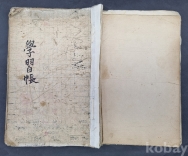 學習帳
kobay